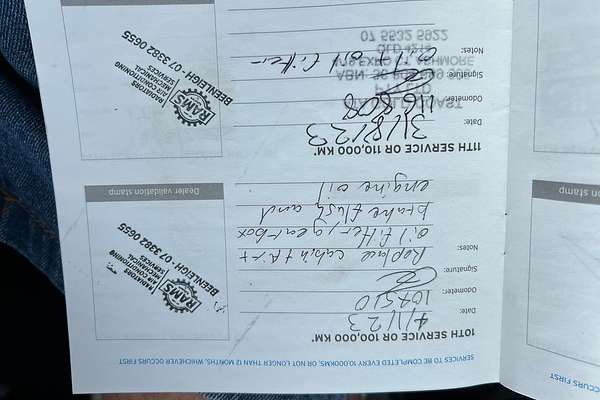 SERVICES TO BE COMPLETED EVERY 10,000KMS, OR NOT LONGER THAN 12 MONTHS, WHICHEVER OCCURS FIRST
10TH SERVICE OR 100,000 KM*
Date: 4/1/23
Odometer: 104510
Signature:
Notes: Replace cabin + Air
oil filter, gearbox
brake flush and
engine oil
RAMS
RADIATORS
AIR CONDITIONING
MECHANICAL
SERVICES
BEENLEIGH - 07 3382 0655
Dealer validation stamp
11TH SERVICE OR 110,000 KM*
Date: 31/8/23
Odometer: 116808
Signature:
Notes: oil + oil filter
PTY LTD
ASHMORE
QLD 4214
07 5532 5922
RAMS
RADIATORS
AIR CONDITIONING
MECHANICAL
SERVICES
BEENLEIGH - 07 3382 0655
Dealer validation stamp
CCURS FIRST
on stamp